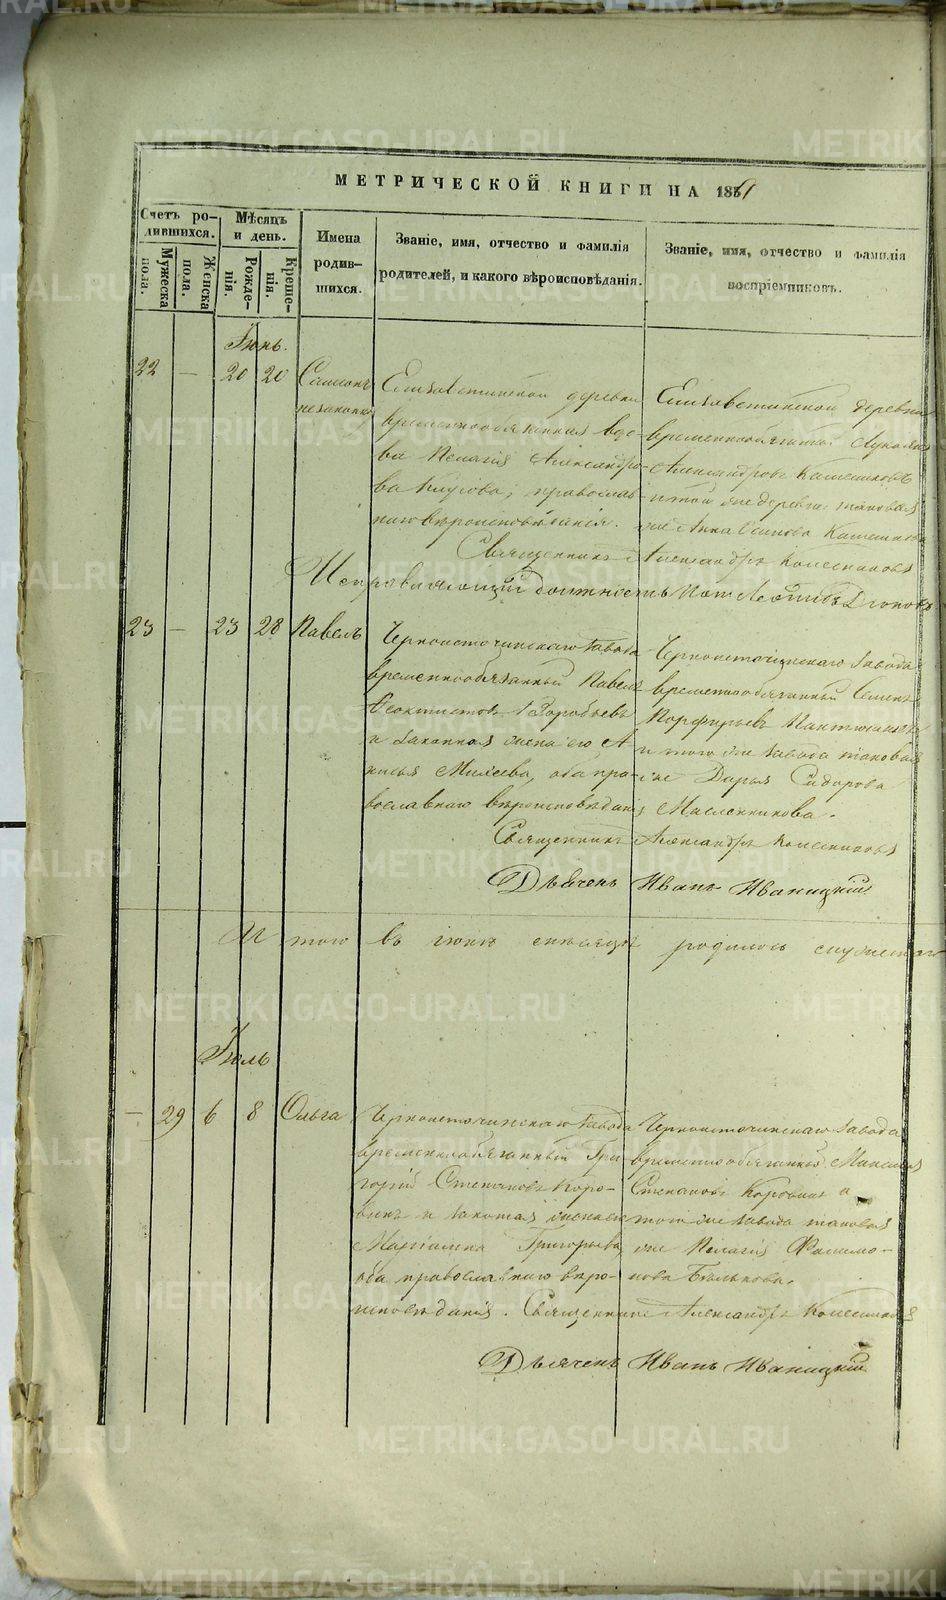 МЕТРИЧЕСКОЙ КНИГИ НА 1861
Счетъ родившихся.
Мужеска пола.
Женска пола.
Мѣсяцъ и день.
Рожденія.
Крещенія.
Имена родившихся.
Званіе, имя, отчество и фамилія
родителей, и какого вѣроисповѣданія.
Званіе, имя, отчество и фамилія
воспріемниковъ.
Іюнь.
22 — 20 20
незаконно
Елизаветинской деревни
временнообязанная вдо-
ва Пелагія Александро-
ва православ-
наго вѣроисповѣданія.
Елизаветинской деревни
временнообязанный
Александровъ
и той же деревни таковая
же Анна Осипова
Священникъ Александръ Колесниковъ
Исправляющій должность
23 — 23 28 Павелъ
Черноисточинскаго завода
временнообязанный Павелъ
Ѳеоктистовъ Воробьевъ
и законная жена его А-
нисья Михеева, оба пра-
вославнаго вѣроисповѣданія
Черноисточинскаго завода
временнообязанный Семенъ
Порфирьевъ
и того же завода таковая
же Дарья Сидорова
Масленникова.
Священникъ Александръ Колесниковъ
Дьячекъ Иванъ Иваницкій
Итого въ іюнѣ мѣсяцѣ родилось мужеска
Іюль
— 29 6 8 Ольга
Черноисточинскаго завода
временнообязанный Гри-
горій Степановъ Коро-
винъ и законная жена его
Маріамна Григорьева,
оба православнаго вѣро-
исповѣданія.
Черноисточинскаго завода
временнообязанный Максимъ
Степановъ Коровинъ и
того же завода таковая
же Пелагія Филимо-
нова Бѣлькова.
Священникъ Александръ Колесниковъ
Дьячекъ Иванъ Иваницкій
METRIKI.GASO-URAL.RU